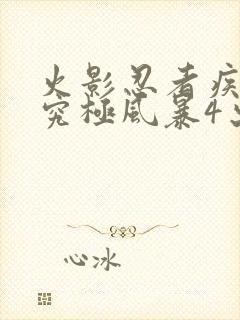 火影忍者疾
究极风暴4
心冰